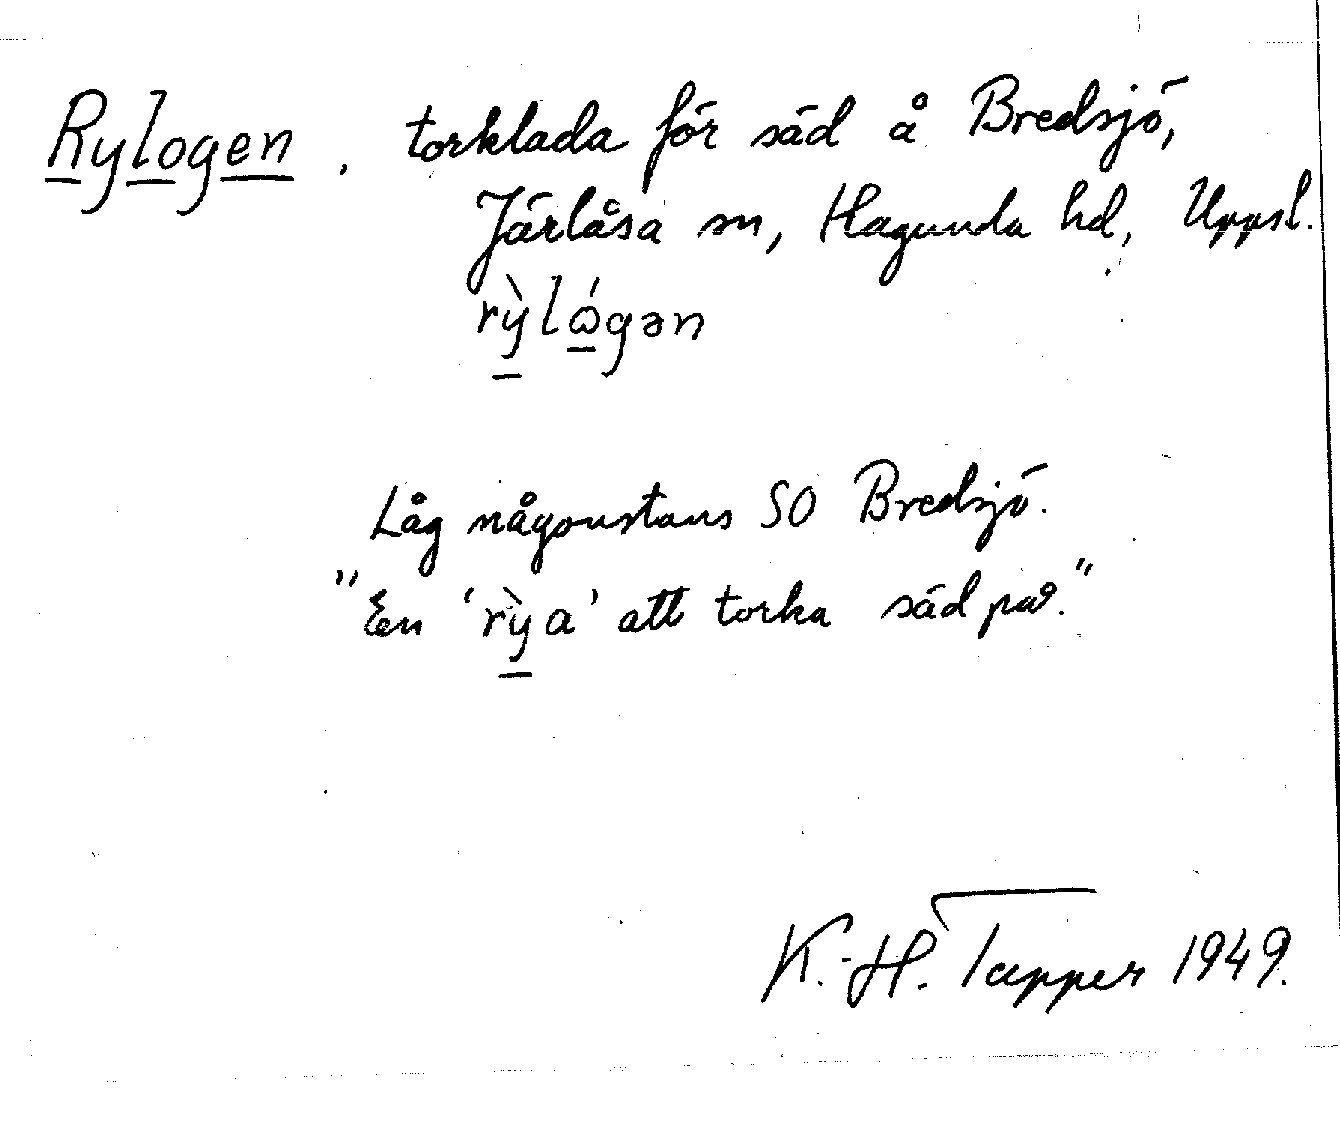 Rylogen, torklada för säd å Bredsjö,
Järlåsa sn, Hagunda hd, Uppsl.
rỳlώgən
Låg någonstans SO Bredsjö.
"En 'rỳa' att torka säd på."
K.-H. Tapper 1949.